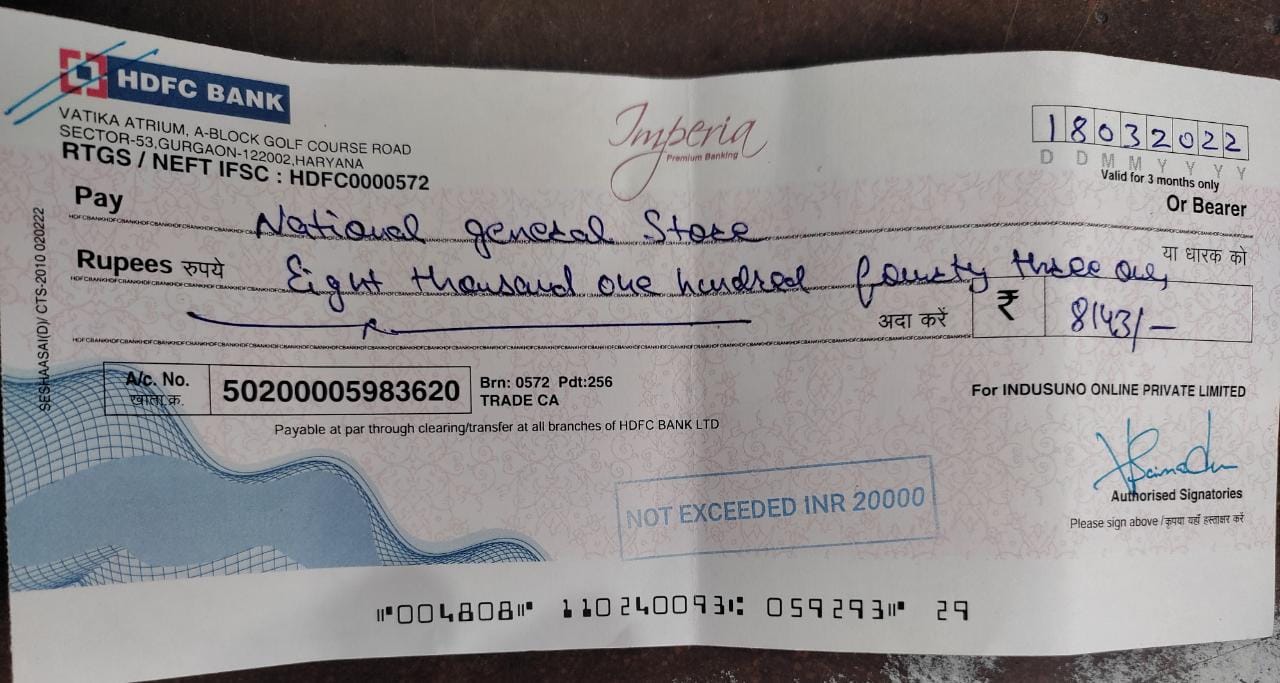 HDFC BANK
VATIKA ATRIUM, A-BLOCK GOLF COURSE ROAD
SECTOR-53,GURGAON-122002,HARYANA
RTGS / NEFT IFSC : HDFC0000572
Imperia
Premium Banking
18032022
D D M M Y Y Y Y
Valid for 3 months only
Pay National general Store
Or Bearer
या धारक को
Rupees रुपये Eight thousand one hundred fourty three only
अदा करें ₹ 8143/-
A/c. No.
खाता क्र.
50200005983620
Brn: 0572 Pdt:256
TRADE CA
Payable at par through clearing/transfer at all branches of HDFC BANK LTD
For INDUSUNO ONLINE PRIVATE LIMITED
NOT EXCEEDED INR 20000
Authorised Signatories
Please sign above /कृपया यहाँ हस्ताक्षर करें
SESHAASAI(D)/ CTS-2010 020222
⑈004808⑈ 110240093⑆ 059293⑈ 29